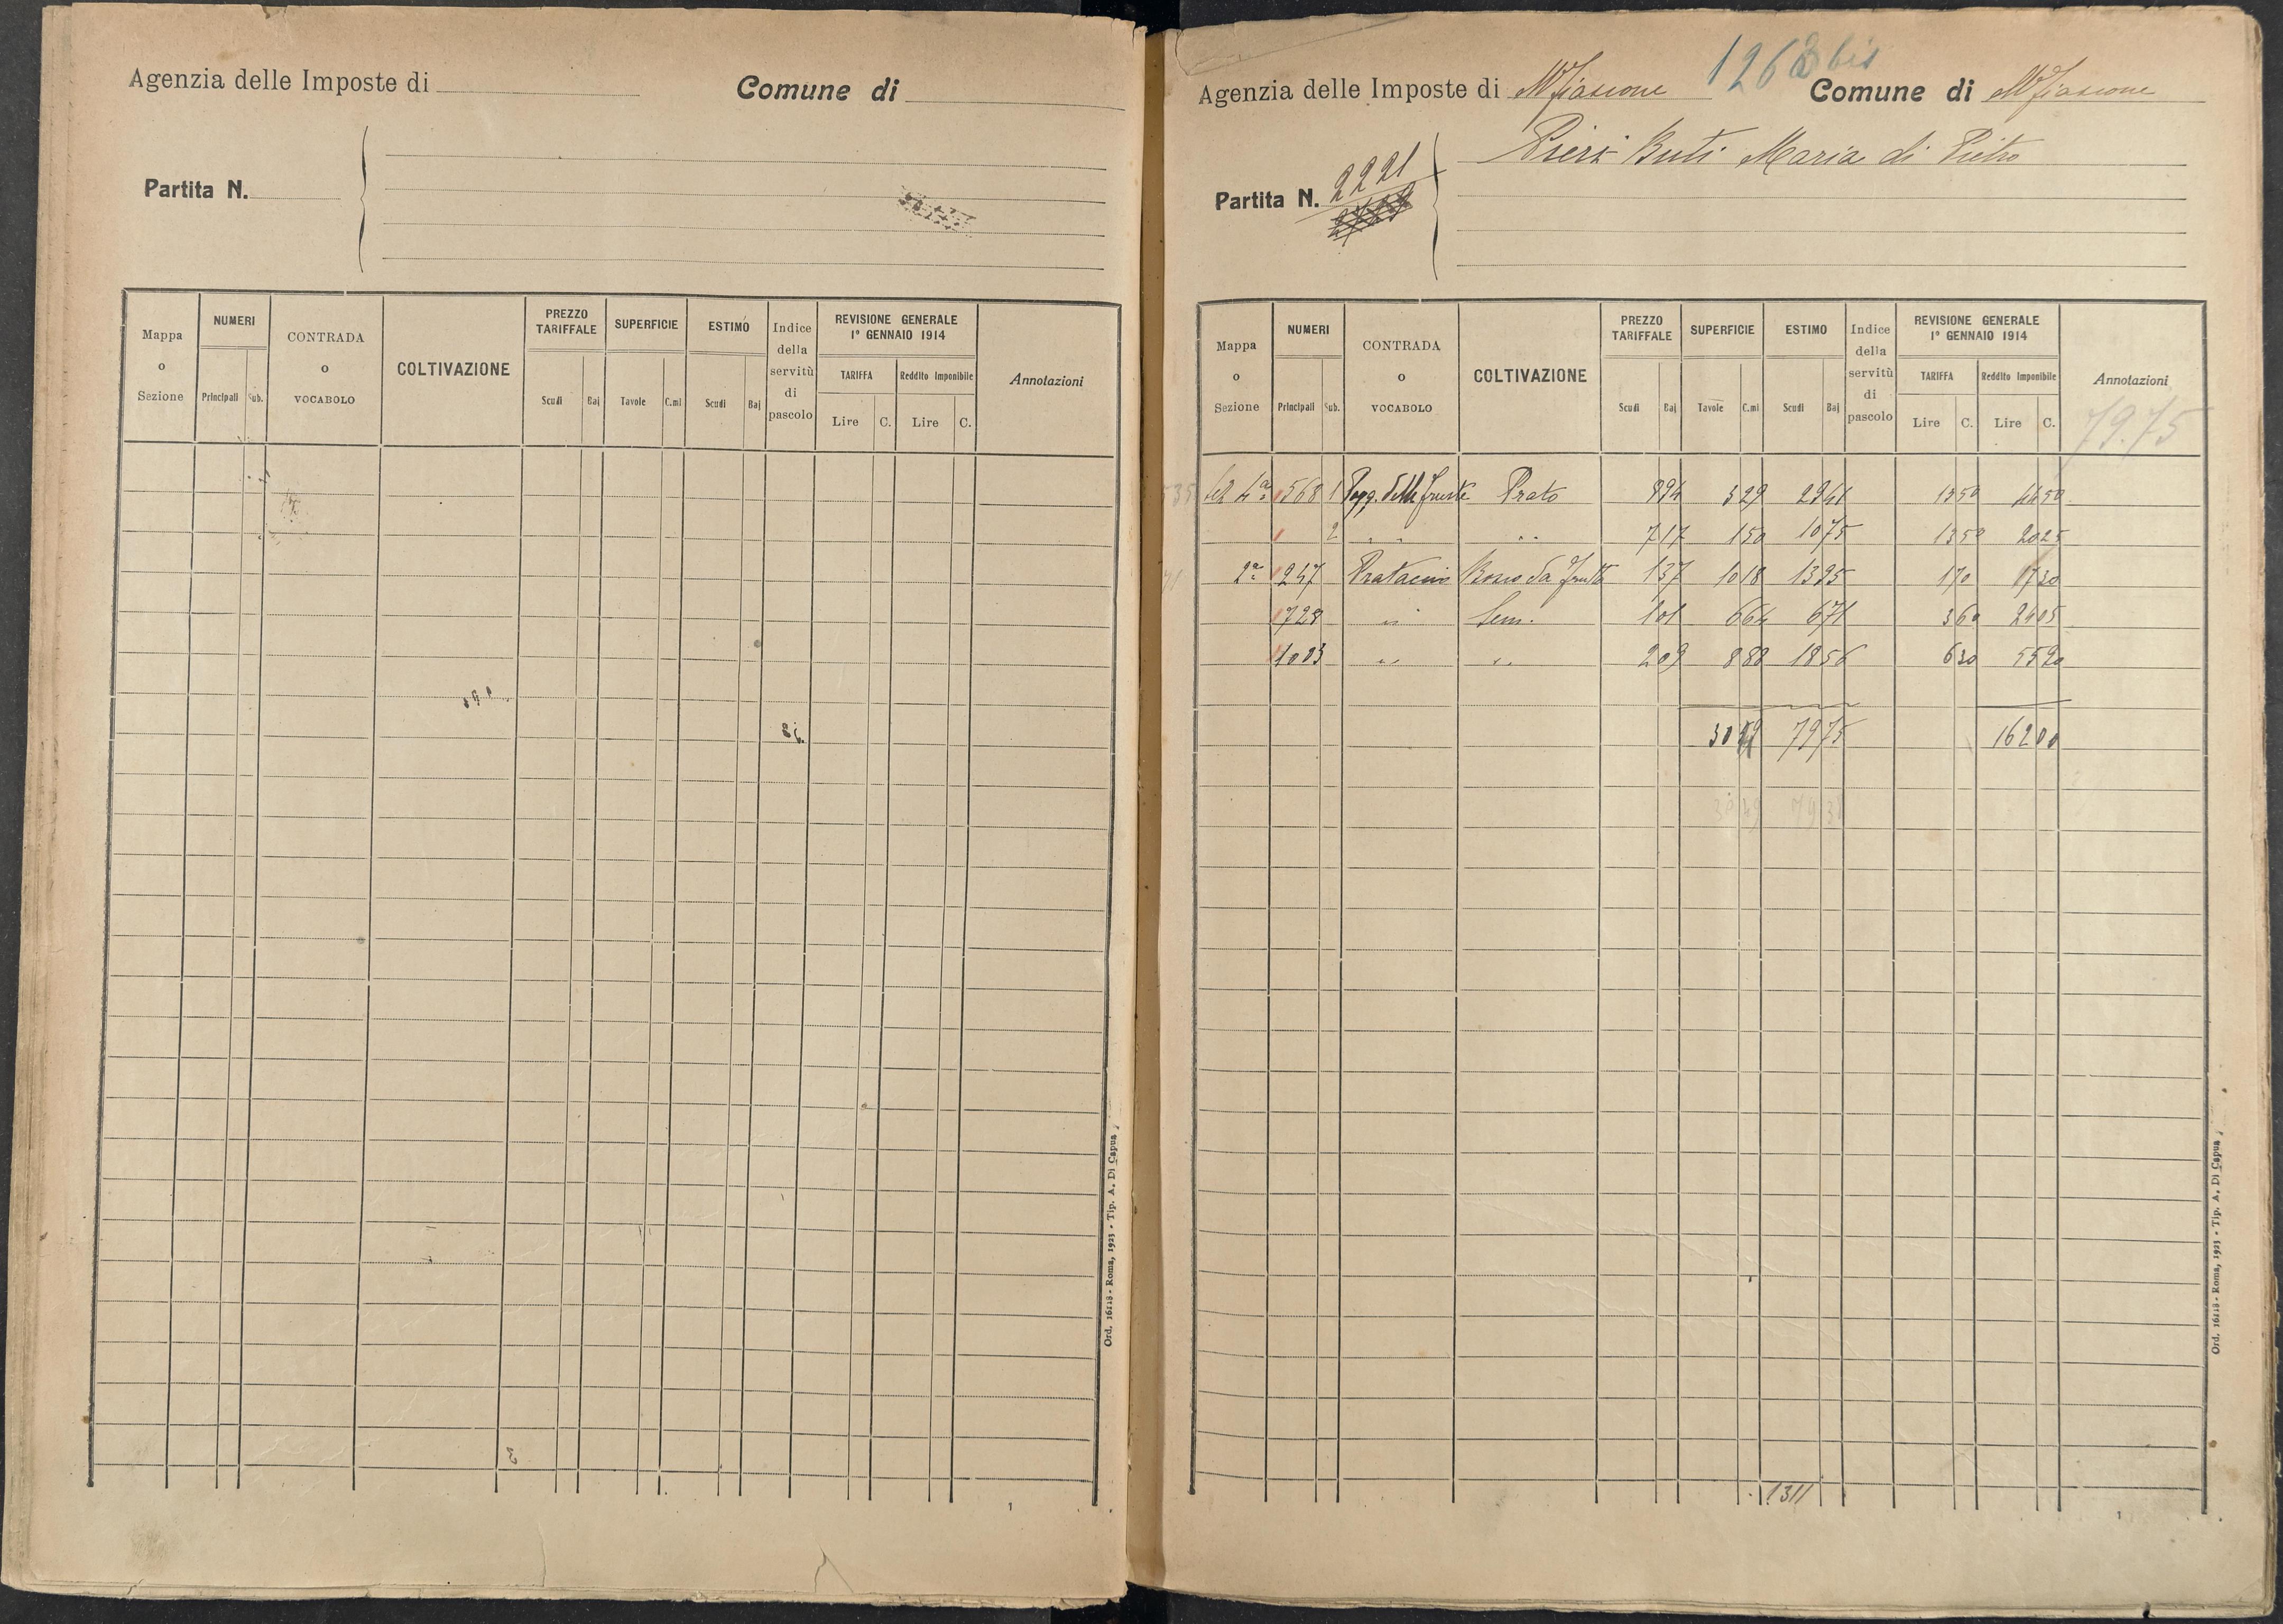 Agenzia delle Imposte di
Comune di
Partita N.
Mappa o Sezione
NUMERI
Principali Sub.
CONTRADA o VOCABOLO
COLTIVAZIONE
PREZZO TARIFFALE
Scudi Baj
SUPERFICIE
Tavole C.mi
ESTIMO
Scudi Baj
Indice della servitù di pascolo
REVISIONE GENERALE
1° GENNAIO 1914
TARIFFA
Lire C.
Reddito Imponibile
Lire C.
Annotazioni
Ord. 16118 - Roma, 1923 - Tip. A. Di Capua
1
1263 bis
Agenzia delle Imposte di Mfiascone
Comune di Mfiascone
Pieri Buti Maria di Pietro
Partita N. 2221
Mappa o Sezione
NUMERI
Principali Sub.
CONTRADA o VOCABOLO
COLTIVAZIONE
PREZZO TARIFFALE
Scudi Baj
SUPERFICIE
Tavole C.mi
ESTIMO
Scudi Baj
Indice della servitù di pascolo
REVISIONE GENERALE
1° GENNAIO 1914
TARIFFA
Lire C.
Reddito Imponibile
Lire C.
Annotazioni
79.75
568 1 Pogg. delle Prato 894 329 2941 1350 4450
2 " " " " 717 150 1075 1350 2025
2ª 247 Pratacci Bosco da frutto 137 1018 1395 170 1730
728 " Sem. 101 664 671 360 2405
1003 " " " " 209 888 1856 630 5590
7975 16200
1311
Ord. 16118 - Roma, 1923 - Tip. A. Di Capua
1